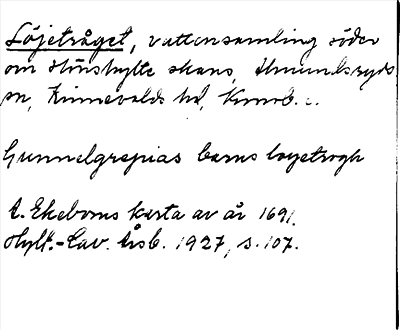 Löjetråget, vattensamling söder
om Hönshylte skans, Urmundsryds
sn, Kinnevalds hd, Kronob. l.
Gunnelgrepias barns loyetrogh
A. Ekeboms karta av år 1691.
Hylt.-Cav. Årsb. 1927, s. 107.